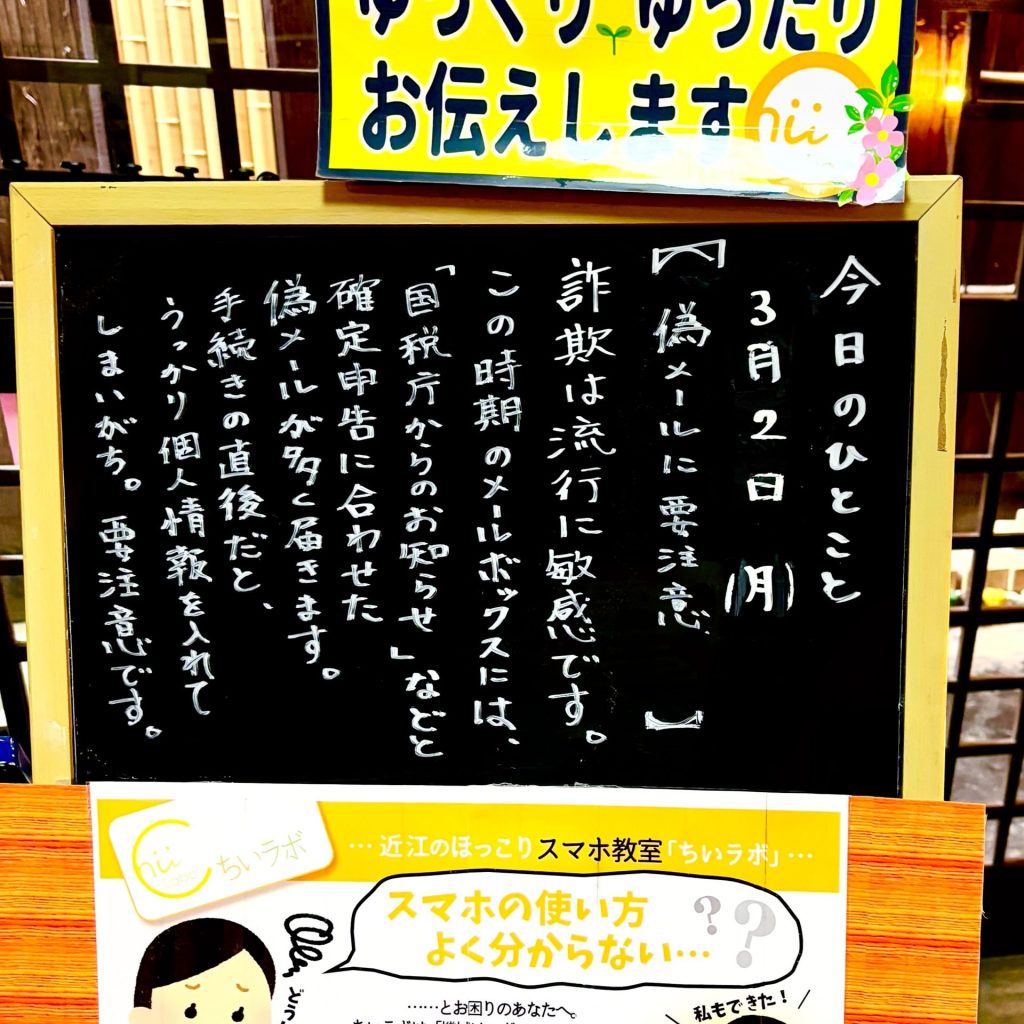 ゆっくり ゆったり
お伝えします
hii
今日のひとこと
3月2日(月)
【偽メールに要注意】
詐欺は流行に敏感です。
この時期のメールボックスには、
「国税庁からのお知らせ」などと
確定申告に合わせた
偽メールが多く届きます。
手続きの直後だと、
うっかり個人情報を入れて
しまいがち。要注意です。
ちいラボ
…近江のほっこりスマホ教室「ちいラボ」…
スマホの使い方
よく分からない…
??
……とお困りのあなたへ。
私もできた!